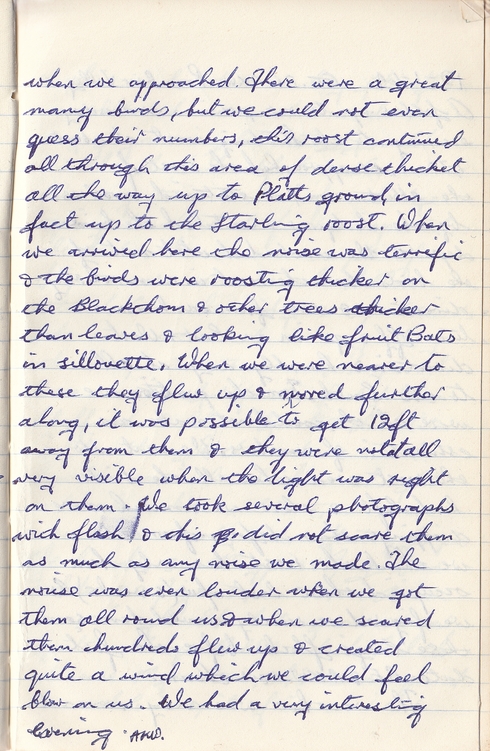 when we approached. There were a great
many birds, but we could not even
guess their numbers, this roost continued
all through this area of dense thicket
all the way up to Platts ground, in
fact up to the Starling roost. When
we arrived here the noise was terrific
& the birds were roosting thicker on
the Blackthorn & other trees thicker
than leaves & looking like fruit Bats
in sillouette. When we were nearer to
these they flew up & moved further
along, it was possible to get 12ft
away from them & they were notatall
very visible when the light was right
on them. We took several photographs
with flash & this did not scare them
as much as any noise we made. The
noise was even louder when we got
them all round us & when we scared
them hundreds flew up & created
quite a wind which we could feel
blow on us. We had a very interesting
evening. AHW.